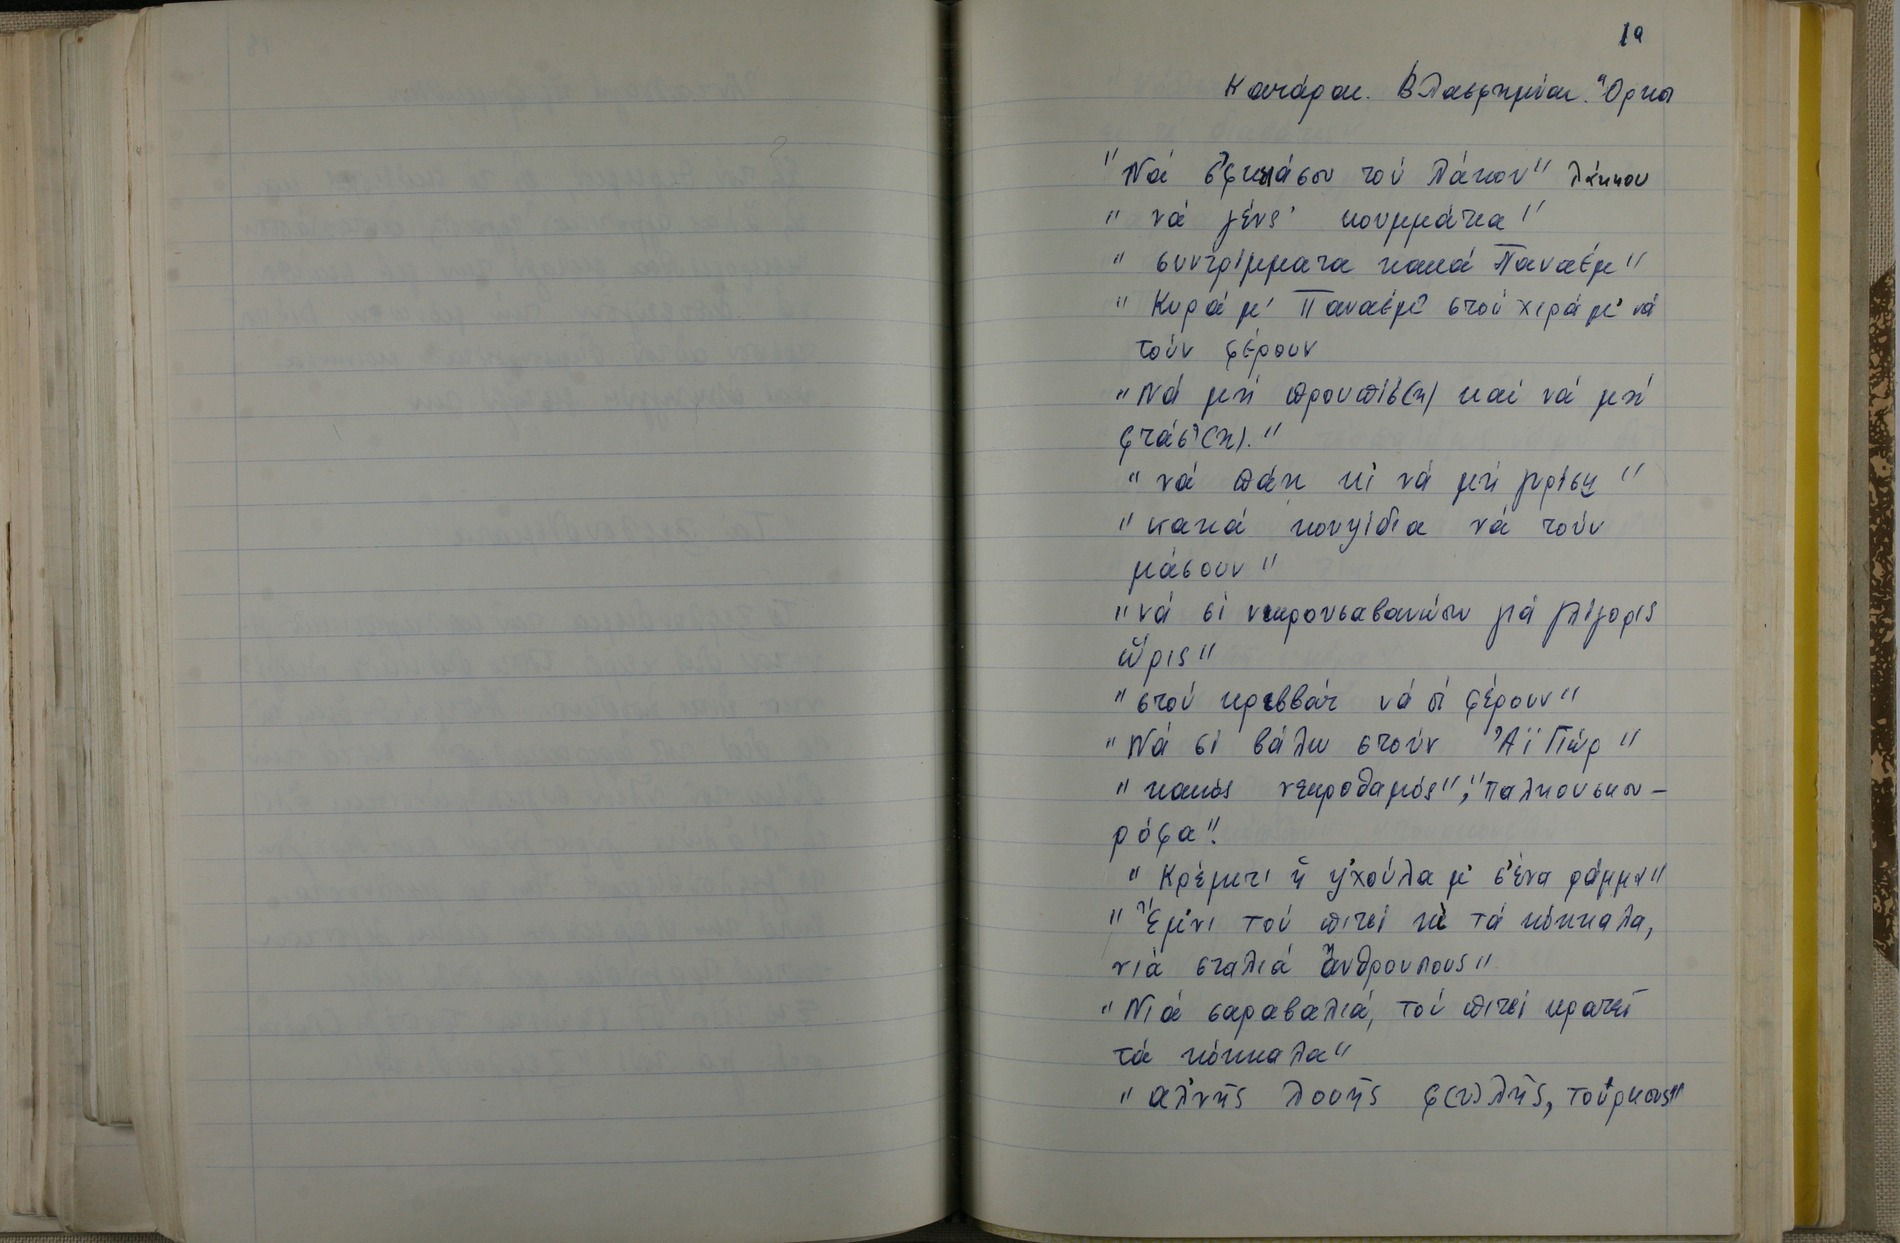 19
Κατάραι. Βλασφημίαι. Ὅρκοι
"Νά σ̓ φκιάσου τού λάκου" λάκκου
"νά γένς' κουμμάτια"
"συντρίμματα κακά Παναέμ"
"Κυρά μ' Παναέμ' στού χιρά μ' νά
τούν φέρουν
"Νά μή προυπίσ(η) καί νά μή
φτάσ'(η)."
"νά πάη κι νά μή γυρίση"
"κακά κουψίδια νά τούν
μάσουν"
"νά σί νεκρουσαβανώσου γιά γλίγορις
ὥρις"
"στού κρεββάτ νά σί φέρουν"
"Νά σί βάλω στούν Ἁϊ Γιώρ"
"κακός νεκροθαμός", "παλκουσκου-
ρόφα".
"Κρέμιτι ἡ ψ'χούλα μ' σ' ἕνα ράμμα"
"Ἔμ'νι τού πιτσί κὶ τά κόκκαλα,
νιά σταλιά ἄνθρουπους"
"Νιά σαραβαλιά, τού πιτσί κρατεῖ
τά κόκκαλα"
"αλ'νῆς λουῆς φ(υ)λῆς, τούρκους"